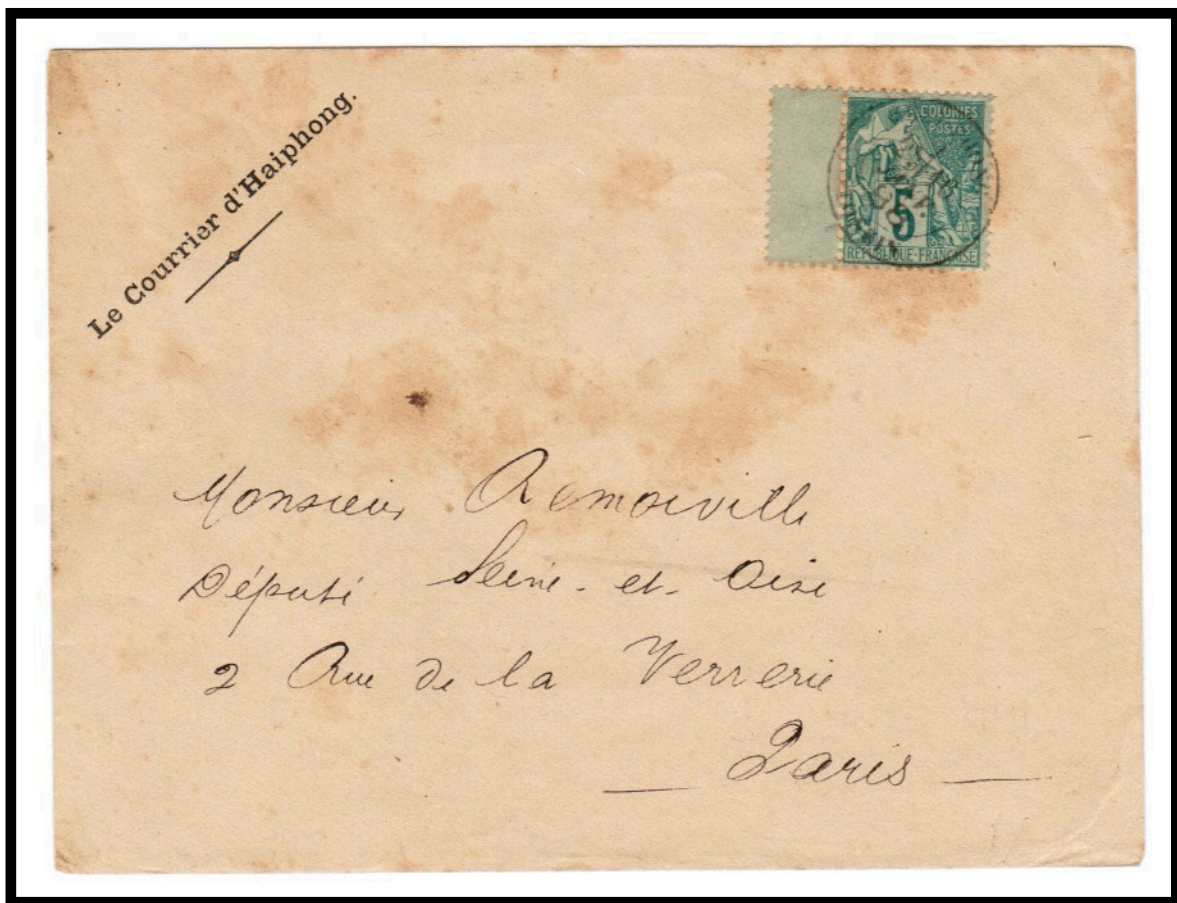 Le Courrier d'Haiphong.
COLONIES
POSTES
5
REPUBLIQUE FRANÇAISE
Monsieur Remoiville
Député Seine-et-Oise
2 Rue de la Verrerie
Paris